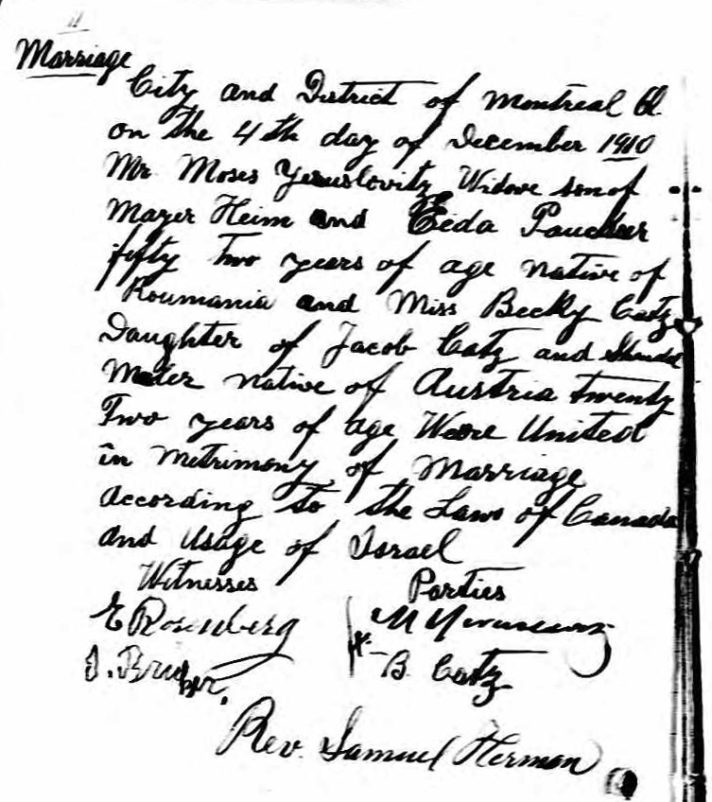 Marriage
City and District of Montreal
on the 4th day of December 1910
Mr. Moses Yeruslovitz Widowe son of
Mayer Heim and
fifty Two years of age native of
Roumania and Miss Becky Catz
Daughter of Jacob Catz and
native of Austria twenty
Two years of age Weere United
in Metrimony of Marriage
According to the Laws of Canada
and Usage of Israel
Witnesses Parties
E Rosenberg
B. Catz
Rev. Samuel Herman